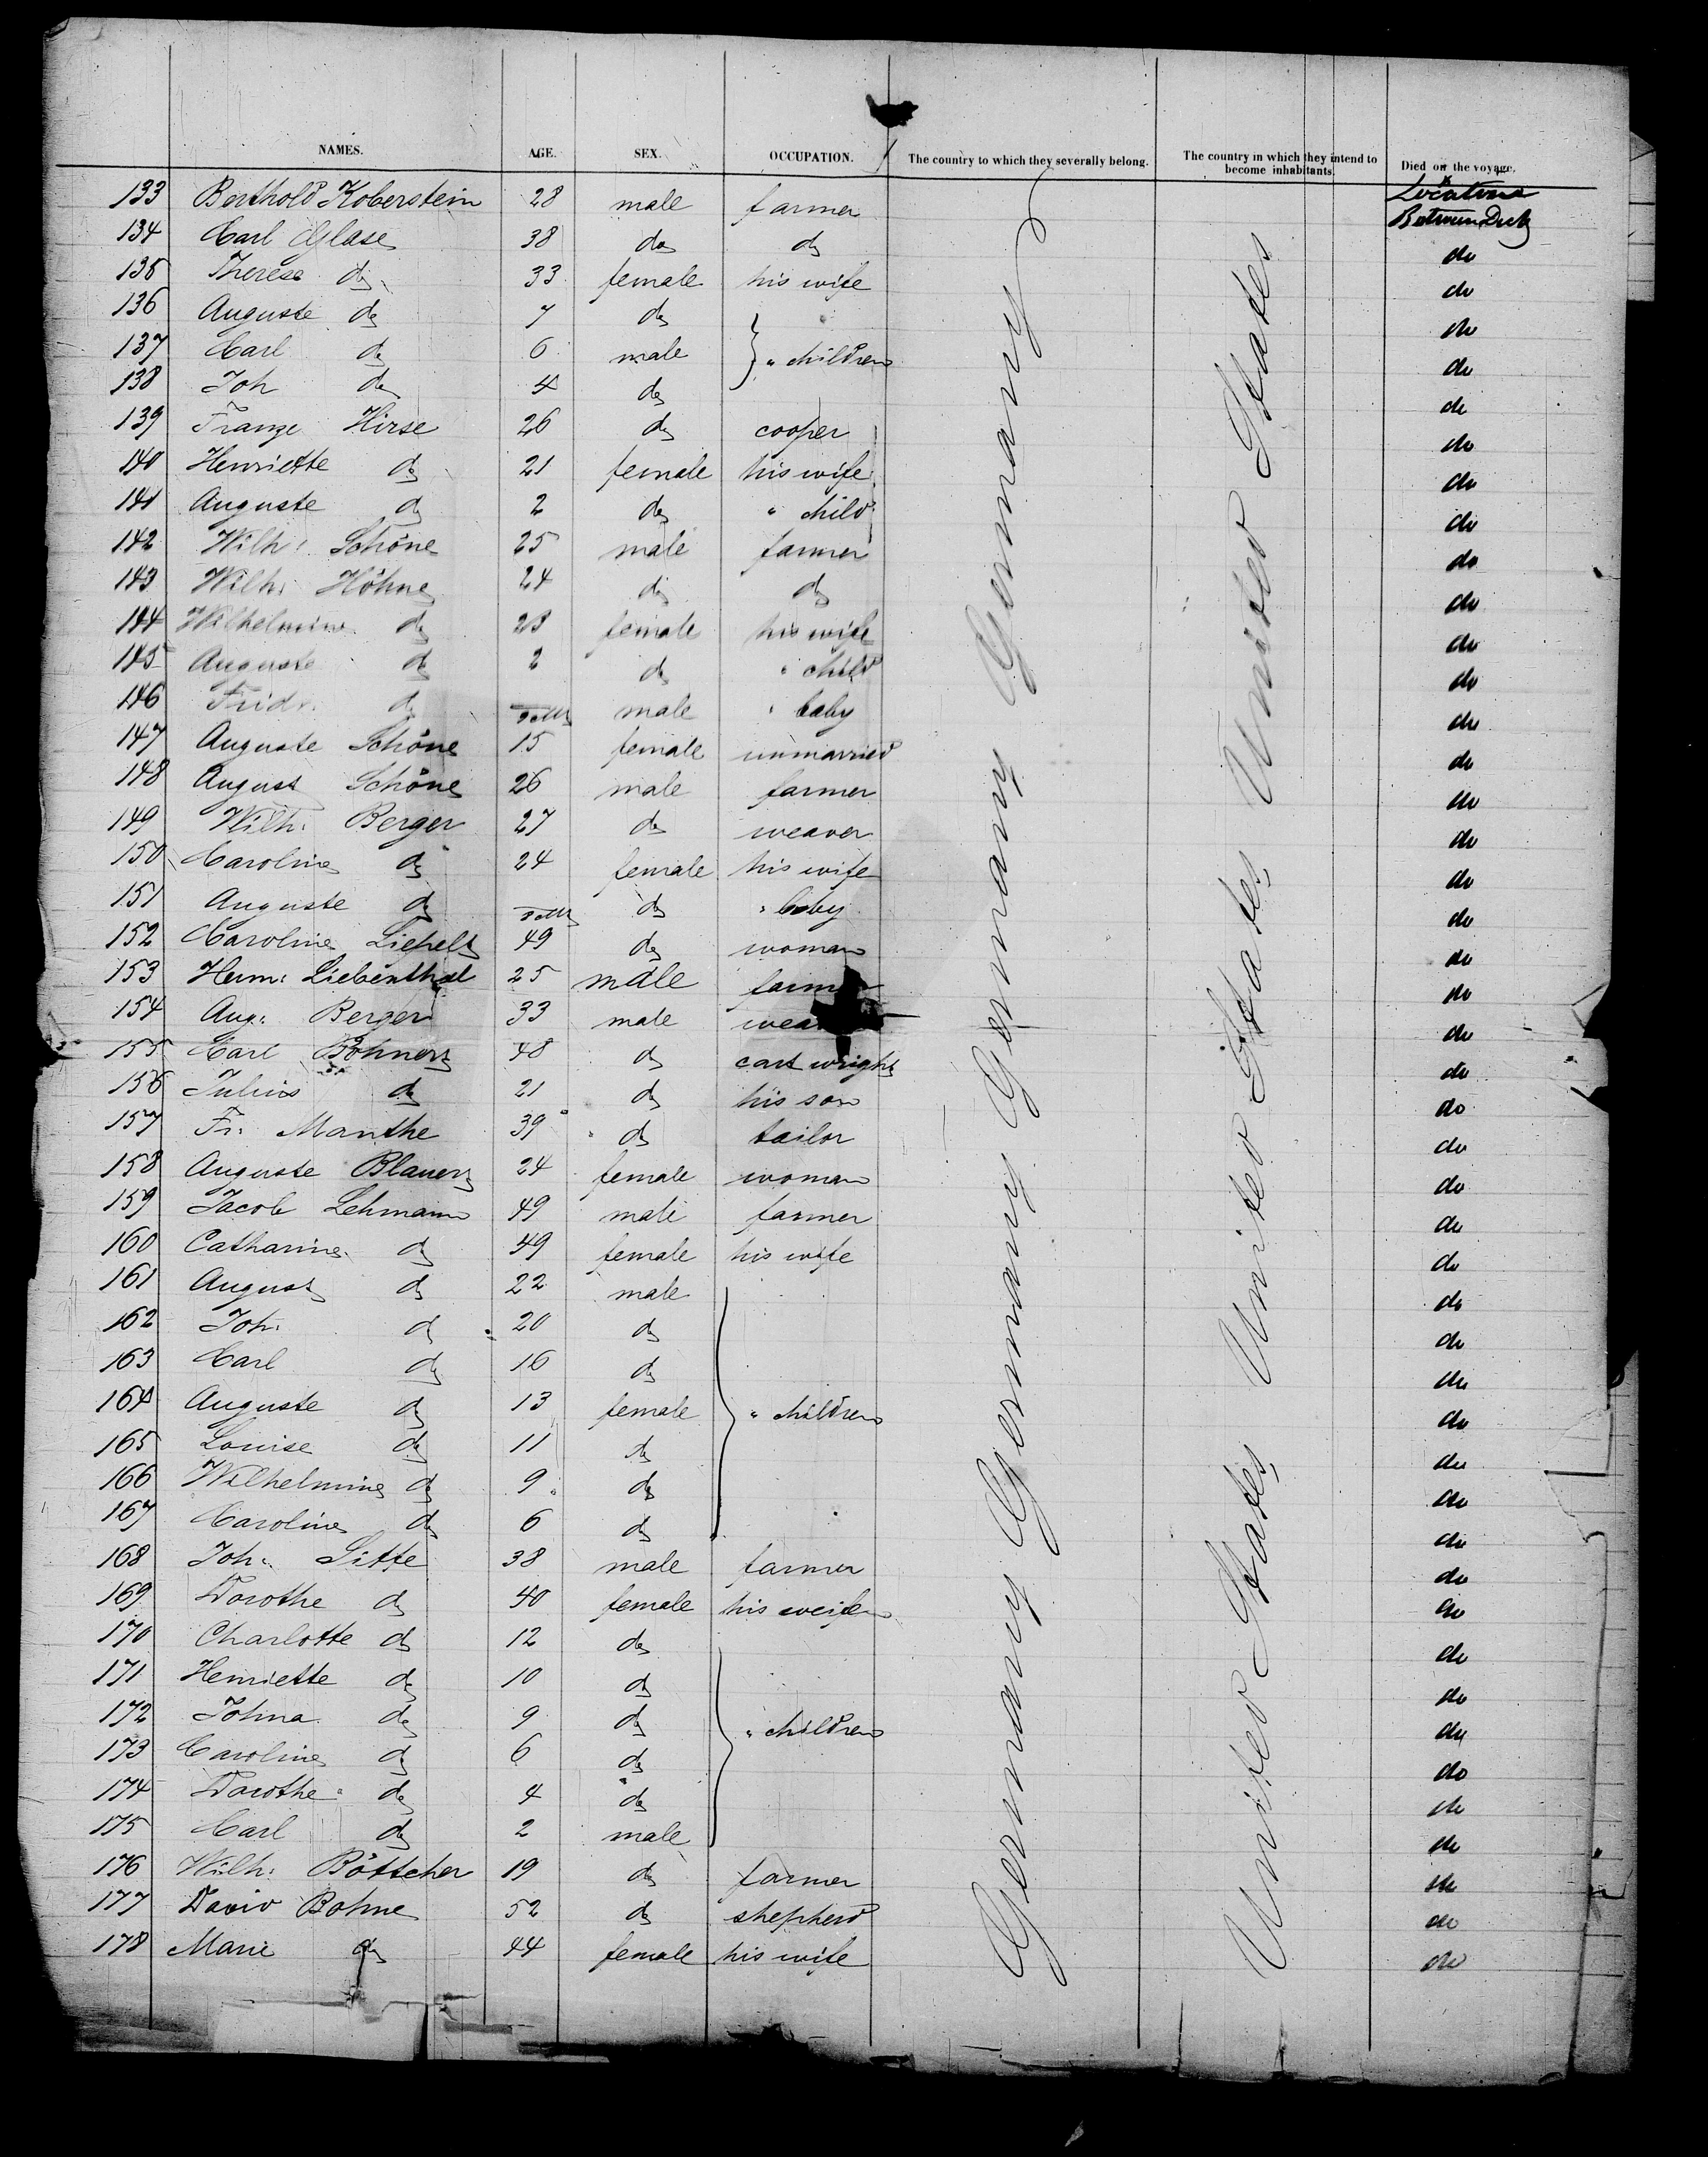 NAMES. AGE. SEX. OCCUPATION. The country to which they severally belong. The country in which they intend to become inhabitants. Died on the voyage.
Location
133 Berthold Koberstein 28 male farmer Between Deck
134 Carl Glase 38 do do do
135 Therese do 33 female his wife do
136 Auguste do 7 do do
137 Carl do 6 male " children do
138 Joh do 4 do do
139 Franze Hirse 26 do cooper do
140 Henriette do 21 female his wife do
141 Auguste do 2 do " child do
142 Wilh: Schöne 25 male farmer do
143 Wilh: Höhne 24 do do do
144 Wilhelmine do 23 female his wife do
145 Auguste do 2 do " child do
146 Fridr. do male " baby do
147 Auguste Schöne 15 female unmarried do
148 August Schöne 26 male farmer do
149 Wilh: Berger 27 do weaver do
150 Caroline do 24 female his wife do
151 Auguste do do " baby do
152 Caroline Liepelt 49 do woman do
153 Herm: Liebenthal 25 male farmer do
154 Aug: Berger 33 male wea do
155 Carl Böhnert 48 do cart wright do
156 Julius do 21 do his son do
157 Fr: Manthe 39 do tailor do
158 Auguste Blauert 24 female woman do
159 Jacob Lehmann 49 male farmer do
160 Catharine do 49 female his wife do
161 August do 22 male do
162 Joh: do 20 do do
163 Carl do 16 do do
164 Auguste do 13 female " children do
165 Louise do 11 do do
166 Wilhelmine do 9 do do
167 Caroline do 6 do do
168 Joh: Sitte 38 male farmer do
169 Dorothe do 40 female his weife do
170 Charlotte do 12 do do
171 Henriette do 10 do do
172 Johna do 9 do " children do
173 Caroline do 6 do do
174 Dorothe do 4 do do
175 Carl do 2 male do
176 Wilh: Böttcher 19 do farmer do
177 David Bohne 52 do shepherd do
178 Marie do 44 female his wife do
Germany Germany Germany Germany Germany
United States United States United States